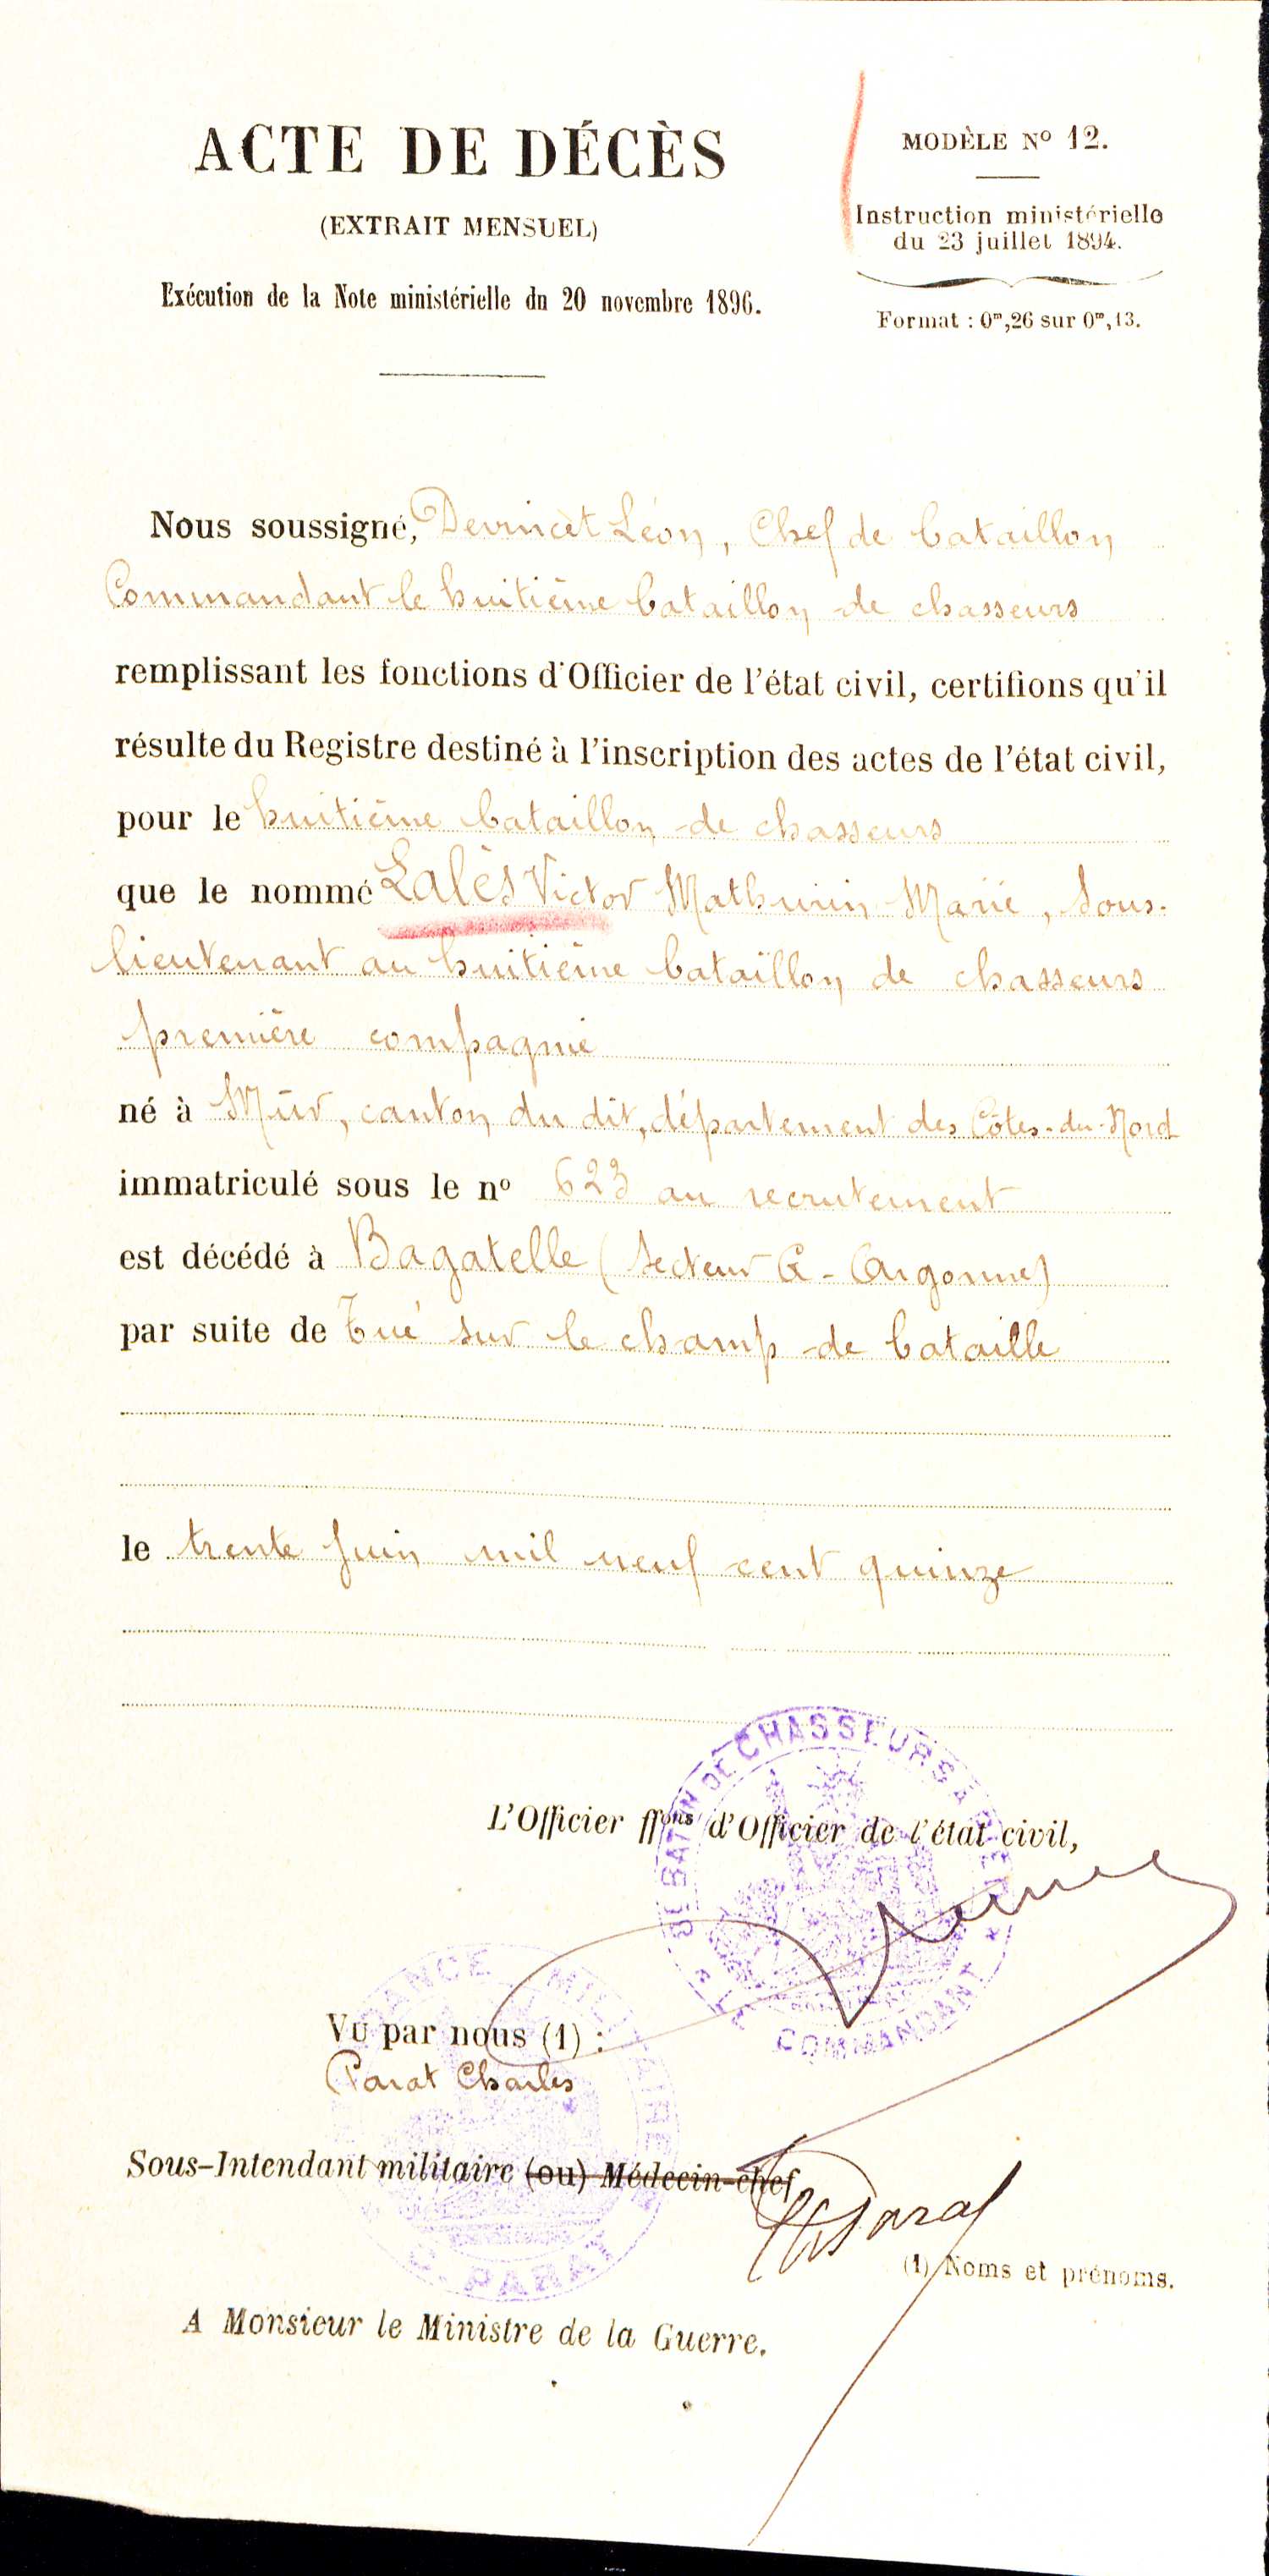 ACTE DE DÉCÈS
(EXTRAIT MENSUEL)
Exécution de la Note ministérielle du 20 novembre 1896.
MODÈLE Nº 12.
Instruction ministérielle
du 23 juillet 1894.
Format : 0ᵐ,26 sur 0ᵐ,13.
Nous soussigné, Devincet Léon, Chef de bataillon
Commandant le huitième bataillon de chasseurs
remplissant les fonctions d'Officier de l'état civil, certifions qu'il
résulte du Registre destiné à l'inscription des actes de l'état civil,
pour le huitième bataillon de chasseurs
que le nommé Lalès Victor Mathurin Marie, Sous-
lieutenant au huitième bataillon de chasseurs
première compagnie
né à Mûr, canton du dit, département des Côtes-du-Nord
immatriculé sous le nº 623 au recrutement
est décédé à Bagatelle (Secteur G - Argonne)
par suite de Tué sur le champ de bataille
le trente Juin mil neuf cent quinze
8E BATON DE CHASSEURS A PIED
LE COMMANDANT
L'Officier ffᵒⁿˢ d'Officier de l'état civil,
Vu par nous (1) :
Parat Charles
MILITAIRE
C. PARAT
Sous-Intendant militaire (ou) Médecin-chef
Ch Parat
(1) Noms et prénoms.
A Monsieur le Ministre de la Guerre.